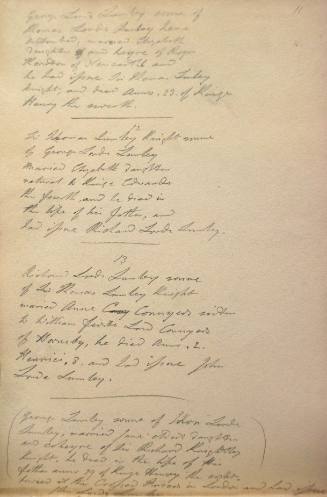 11
George Lorde Lumley sonne of
Thomas Lorde Lumley
married Elizabeth
daughter and heyre of Roger
Thorndon of Newcastle and
he had issue Sr Thomas Lumley
Knight, and died Anno. 23. of Kinge
Henry the seventh.
12
Sr Thomas Lumley Knight sonne
of George Lorde Lumley
Married Elizabeth daughter
naturall to Kinge Edwarde
the fourth, and he died in
the life of his father, and
had issue Richard Lorde Lumley.
13
Richard Lorde Lumley sonne
of Sr Thomas Lumley Knight
maried Anne Conyers sister
to William Lord Conyers
of Hornsby, he died Anno. 2.
Henrici. 8. and had issue John
Lorde Lumley.
George Lumley sonne of John Lorde
Lumley, married Jane daughter
and coheyre of Sir Richard Knightley
Knight, he died in the life of his
father anno 29 of Kinge Henry the eight,
buried at the Crossed Friers in London and had issue